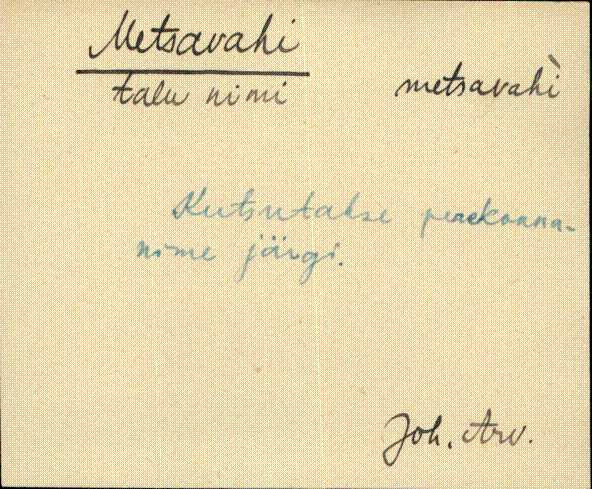 Metsavahi
talu nimi metsavahì
Kutsutakse perekonna-
nime järgi.
Joh. Arv.